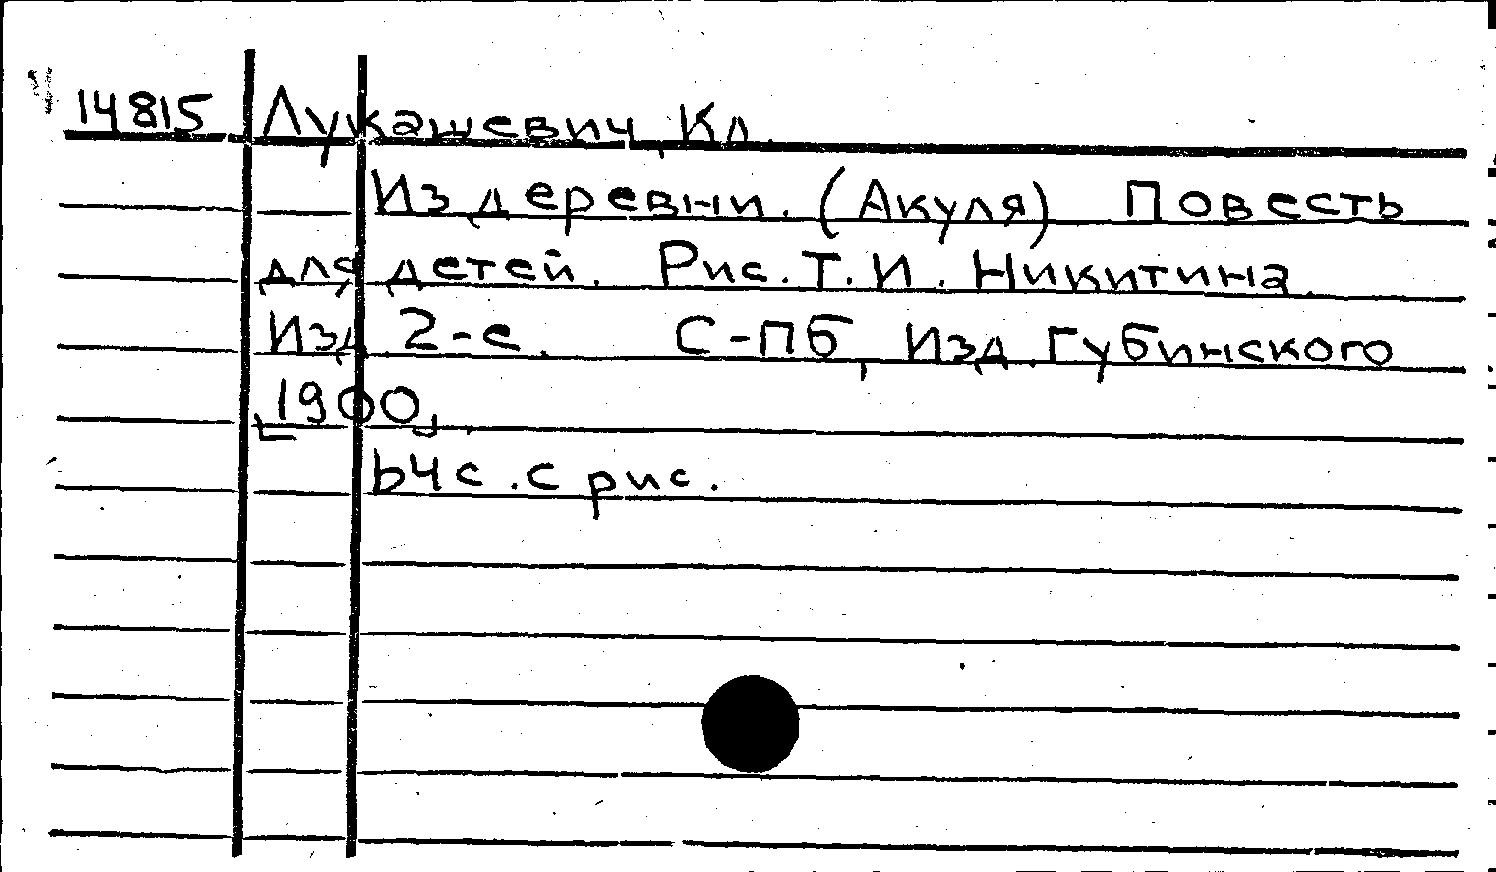 14815 Лукашевич, Кл.
Из деревни. (Акуля) Повесть
для детей. Рис. Т. И. Никитина.
Изд 2-е. С-ПБ, Изд. Губинского
[1900].
64 с. с рис.